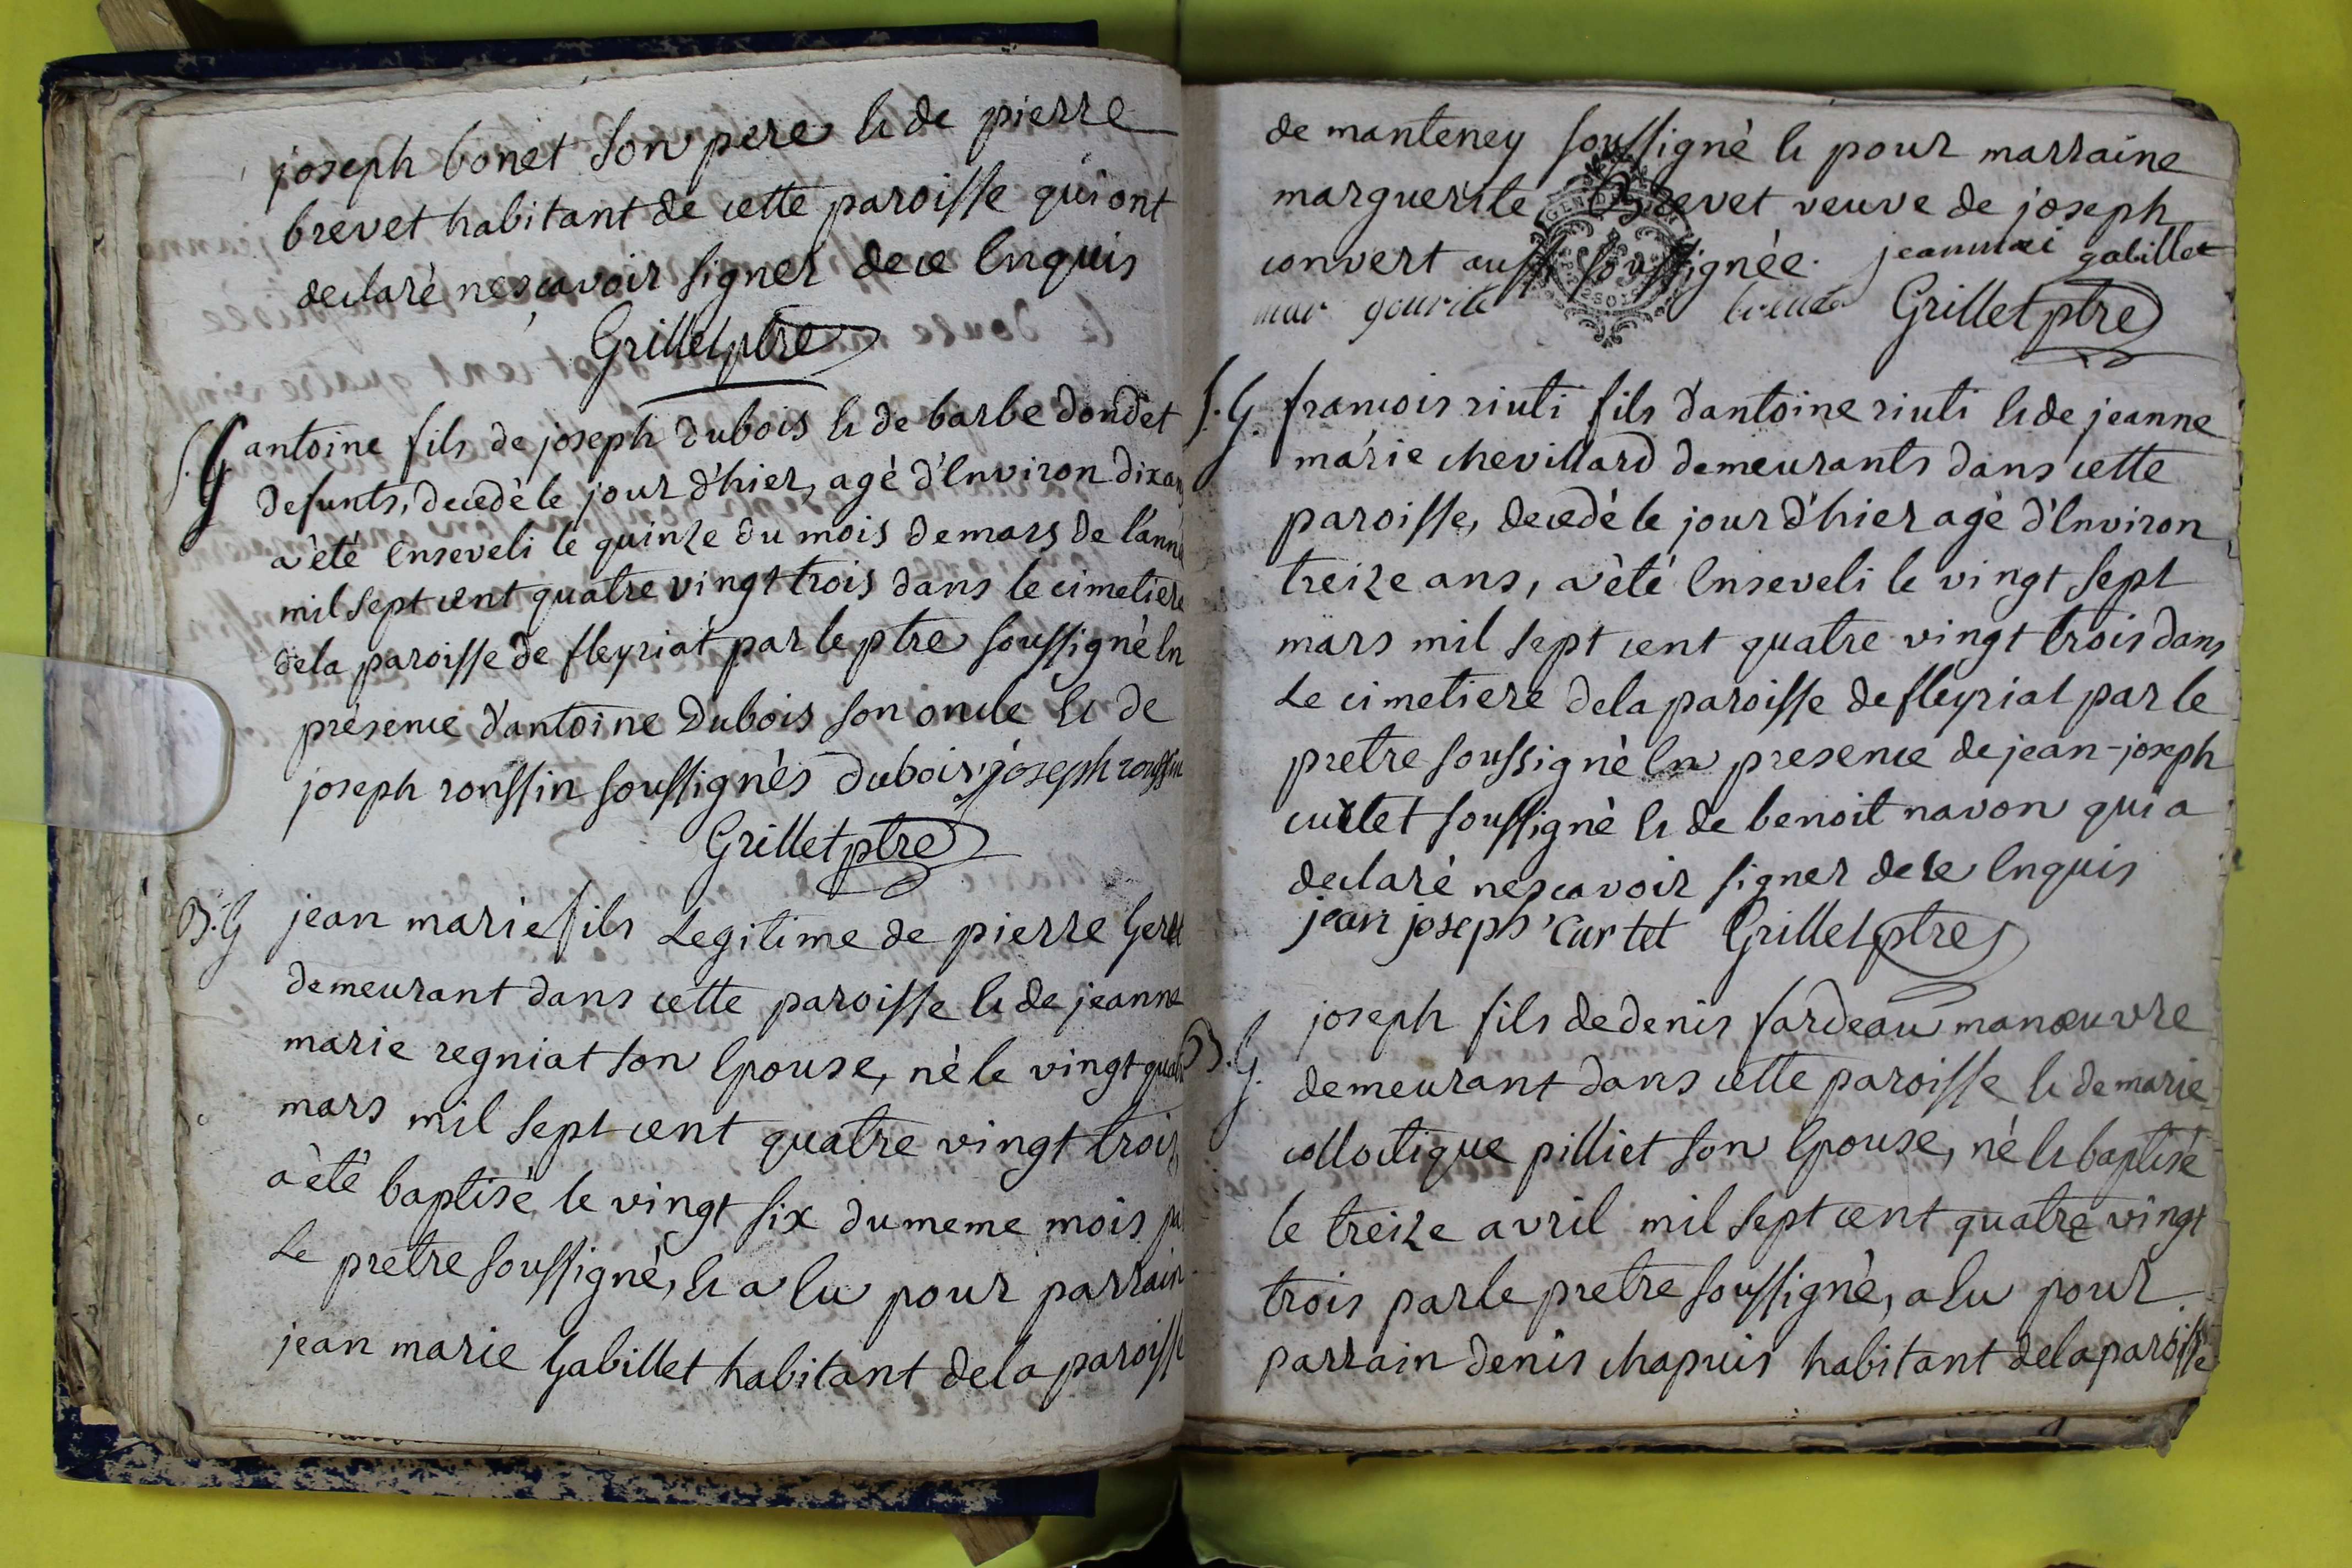 joseph bonet son pere et de pierre
brevet habitant de cette paroisse qui ont
declaré ne sçavoir signer de ce enquis
Grillet ptre
S.G antoine fils de joseph dubois et de barbe dondet
defunts, decedè le jour d'hier, agé d'environ dix ans
a èté enseveli le quinze du mois de mars de l'anné
mil sept cent quatre vingt trois dans le cimetiere
de la paroisse de fleyriat par le ptre soussigné en
présence d'antoine Dubois son oncle et de
joseph roussin soussignés dubois joseph roussin
Grillet ptre
B.G jean marie fils Legitime de pierre
demeurant dans cette paroisse et de jeanne
marie regniat son epouse, né le vingt quatre
mars mil sept cent quatre vingt trois,
a èté baptisé le vingt six du meme mois par
Le pretre soussigné, et a eu pour parrain
jean marie Gabillet habitant de la paroisse
de manteney soussigné et pour marraine
marguerite Brevet veuve de joseph
convert aussi soussignée. jeanmari gabillet
mar gourite brevet Grillet ptre
S.G. francois riuti fils d'antoine riuti et de jeanne
marie chevillard demeurants dans cette
paroisse, decedé le jour d'hier agé d'environ
treize ans, a èté enseveli le vingt sept
mars mil sept cent quatre vingt trois dans
Le cimetiere de la paroisse de fleyriat par le
pretre soussigné en presence de jean-joseph
curtet soussigné et de benoit navon qui a
declaré ne scavoir signer de ce enquis
jean joseph Curtet Grillet ptre
B.G. joseph fils de denis fardeau manœuvre
demeurant dans cette paroisse et de marie
pilliet son epouse, né et baptisé
le treize avril mil sept cent quatre vingt
trois par le pretre soussigné, a eu pour
parrain denis chapuis habitant de la paroisse